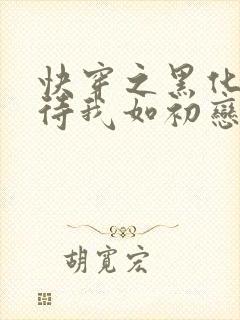 快穿之黑化
待我如初戀
胡寬宏